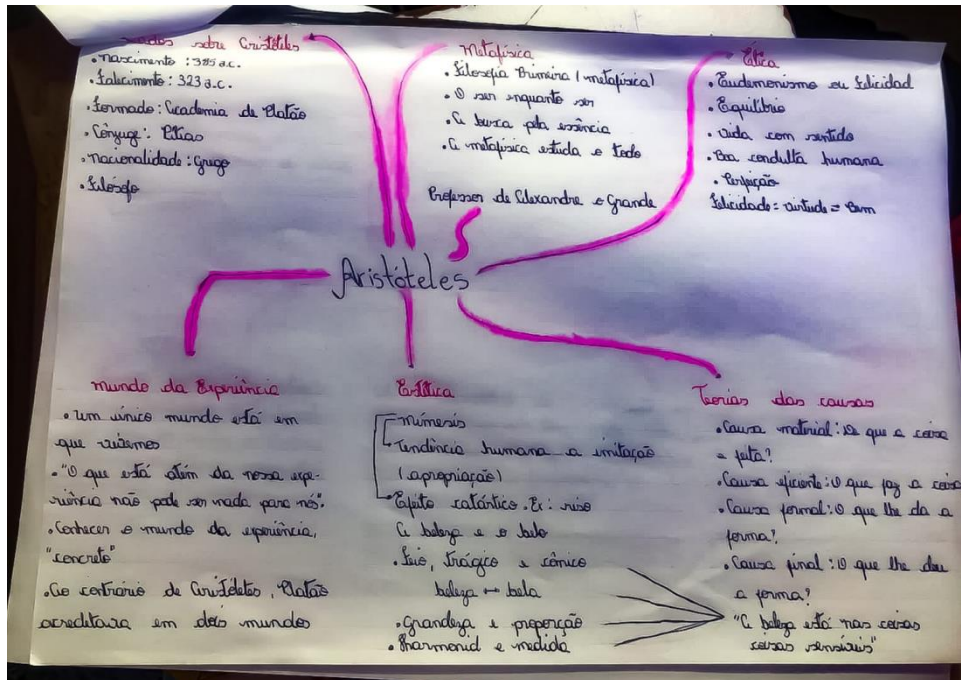 Dados sobre Aristóteles
• nascimento: 385 a.c.
• Falecimento: 323 a.c.
• Formado: Academia de Platão
• Cônjuge: Pítias
• nacionalidade: Grego
• Filósofo
Metafísica
• Filosofia Primeira (metafísica)
• O ser enquanto ser
• A busca pela essência
• A metafísica estuda o todo
Professor de Alexandre o Grande
Ética
• Eudemonismo ou felicidad
• Equilíbrio
• vida com sentido
• Boa conduta humana
• Perfeição
Felicidade = virtude = Bem
Aristóteles
mundo da Experiência
• um único mundo está em
que vivemos
• "O que está além da nossa expe-
riência não pode ser nada para nós".
• Conhecer o mundo da experiência,
"concreto"
• Ao contrário de Aristóteles, Platão
acreditava em dois mundos
Estética
mímesis
Tendência humana a imitação
(apropriação)
Efeito catártico. Ex: riso
A beleza e o belo
• feio, trágico e cômico
beleza ↔ bela
• Grandeza e proporção
• Harmonid e medida
Teorias das causas
• Causa material: De que a coisa
e feita?
• Causa eficiente: O que faz a coisa
• Causa formal: O que lhe da a
forma?
• Causa final: O que lhe deu
a forma?
"A beleza está nas coisas
coisas sensíveis"